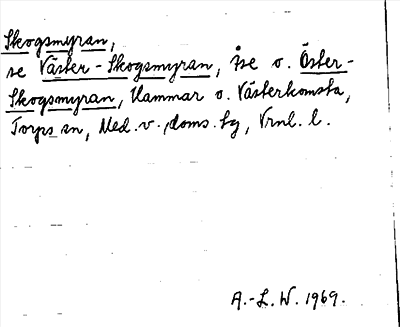 Skogsmyran,
se Väster-Skogsmyran, se o. Öster-
Skogsmyran, Hammar o. Västerkomsta,
Torps sn, Med. v. doms. tg, Vrnl. l.
A.-L. W. 1969.